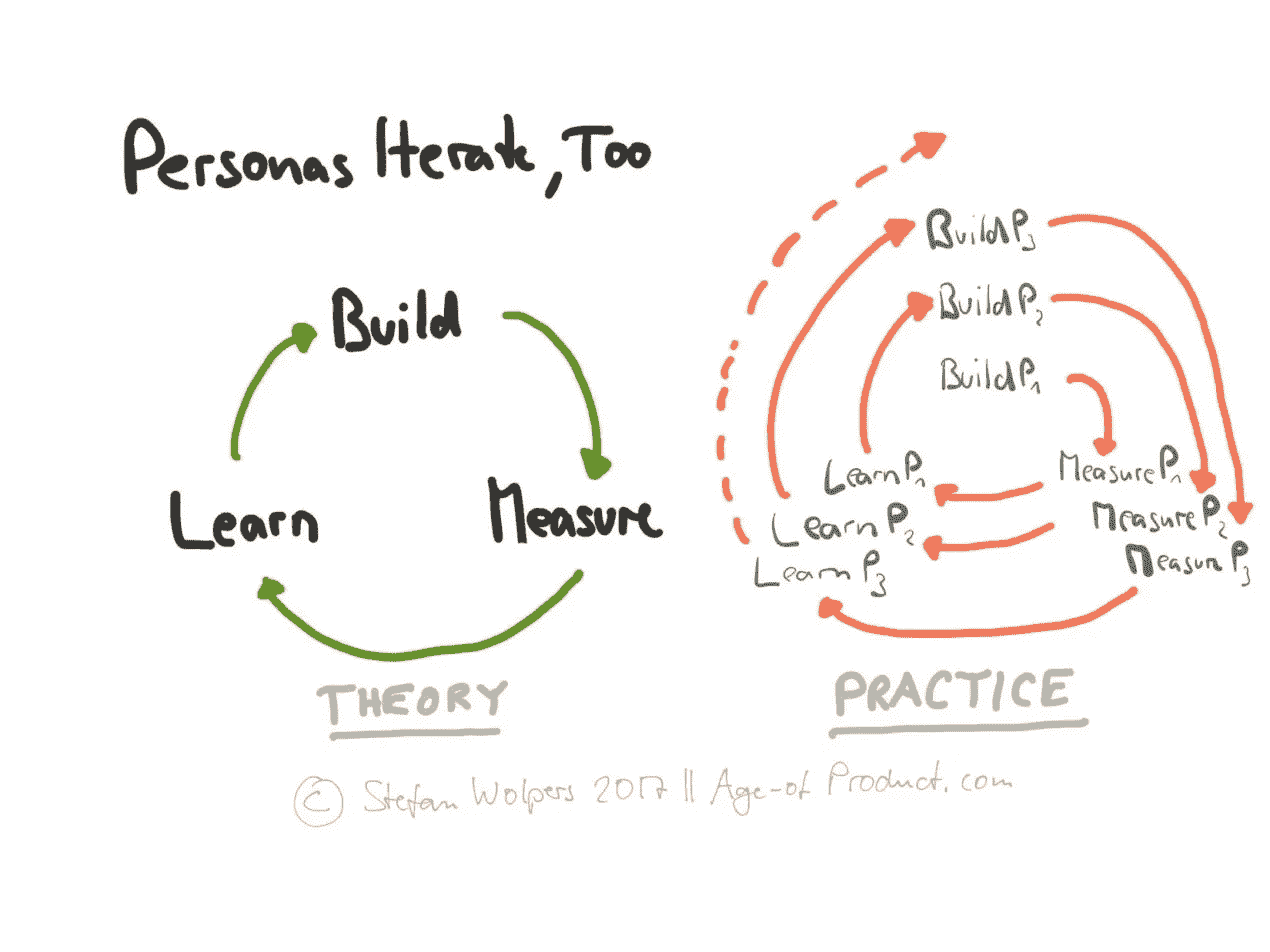 Personas Iterate, Too
Build
Learn
Measure
THEORY
Build P3
Build P2
Build P1
Learn P1
Measure P1
Learn P2
Measure P2
Learn P3
Measure P3
PRACTICE
© Stefan Wolpers 2017 || Age-of Product.com